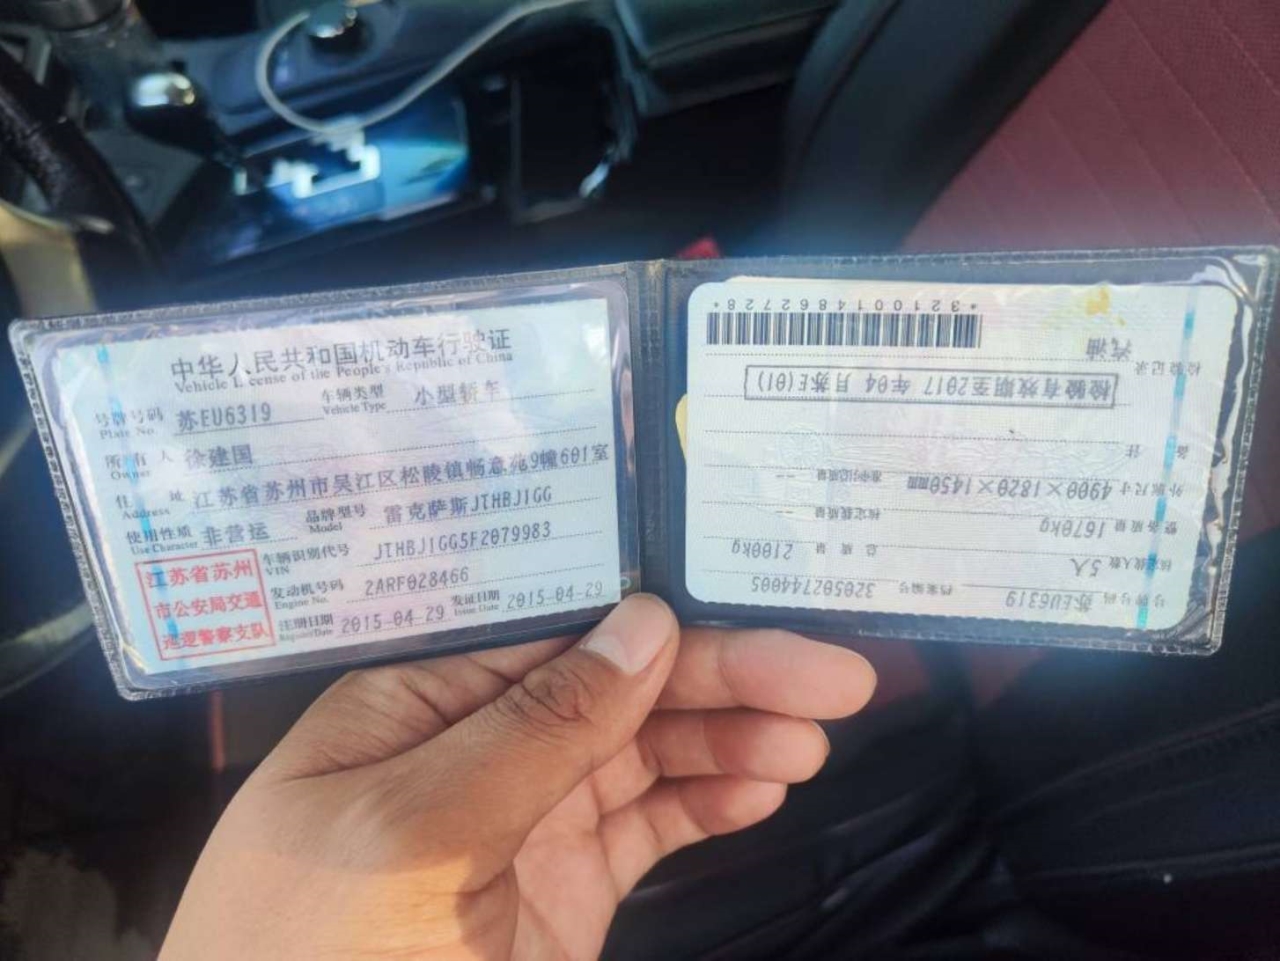 中华人民共和国机动车行驶证
Vehicle License of the People's Republic of China
号牌号码 Plate No. 苏EU6319 车辆类型 Vehicle Type 小型轿车
所有人 Owner 徐建国
住址 Address 江苏省苏州市吴江区松陵镇畅意苑9幢601室
使用性质 Use Character 非营运 品牌型号 Model 雷克萨斯JTHBJ1GG
车辆识别代号 VIN JTHBJ1GG5F2079983
发动机号码 Engine No. 2ARF028466
注册日期 Register Date 2015-04-29 发证日期 Issue Date 2015-04-29
江苏省苏州
市公安局交通
巡逻警察支队
号牌号码 苏EU6319 档案编号 320502744005
核定载人数 5人 总质量 2100kg
整备质量 1670kg 核定载质量 --
外廓尺寸 4900×1820×1450mm 准牵引总质量 --
备注
检验有效期至2017年04月苏E(01)
检验记录
汽油
*3210014862728*